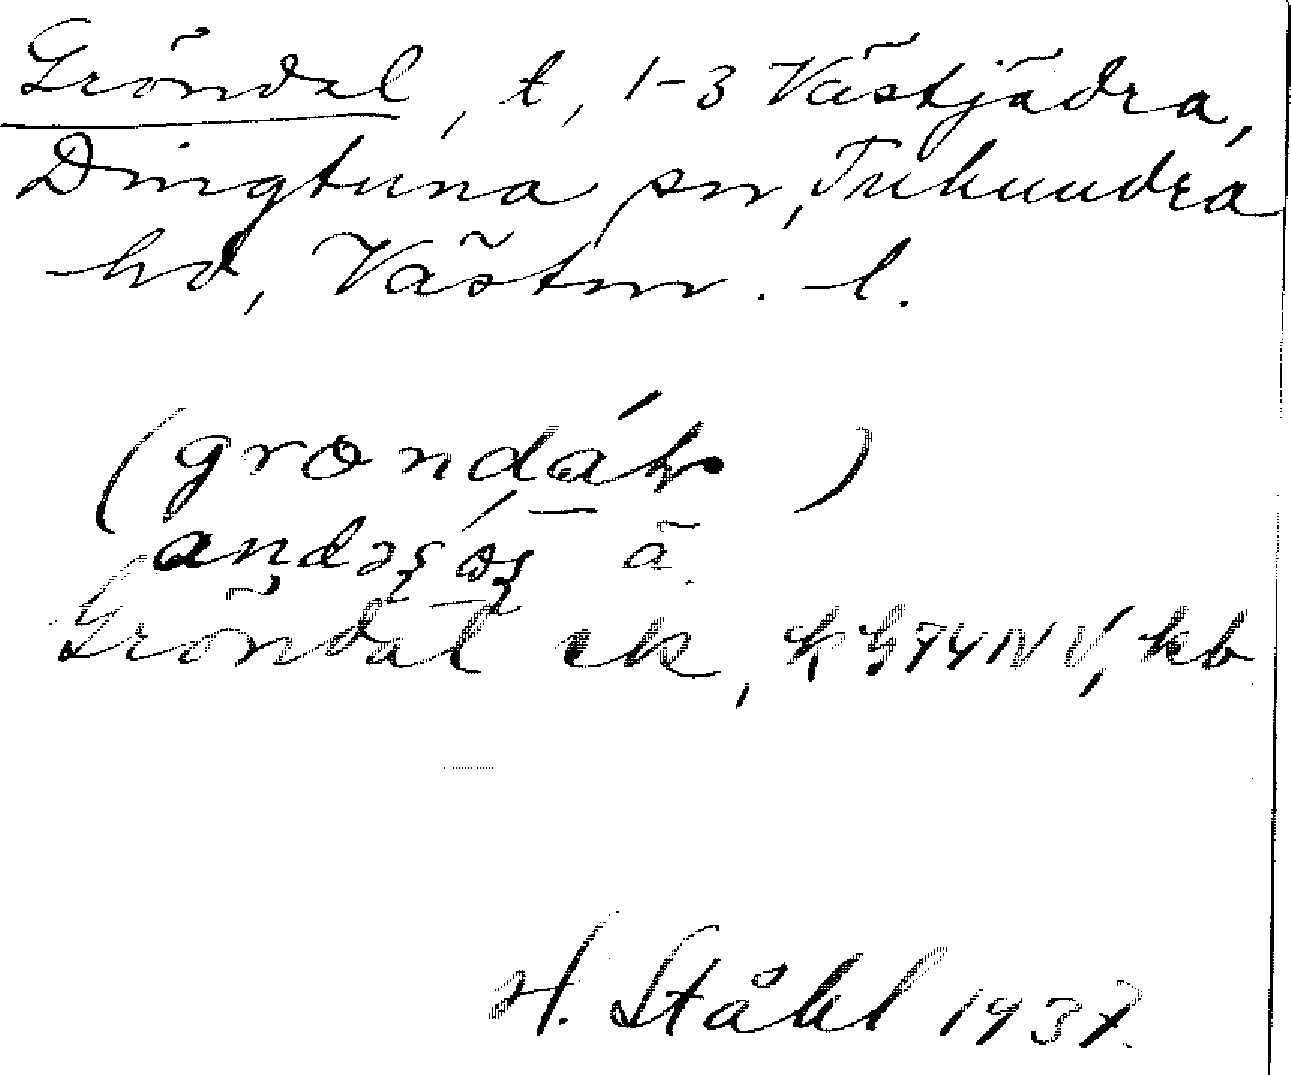 Gröndal, t, 1-3 Västjädra,
Dingtuna sn, Tuhundra
hd, Västm. l.
(grondál)
ä.
Gröndal ek, kb
H. Ståhl 1937.